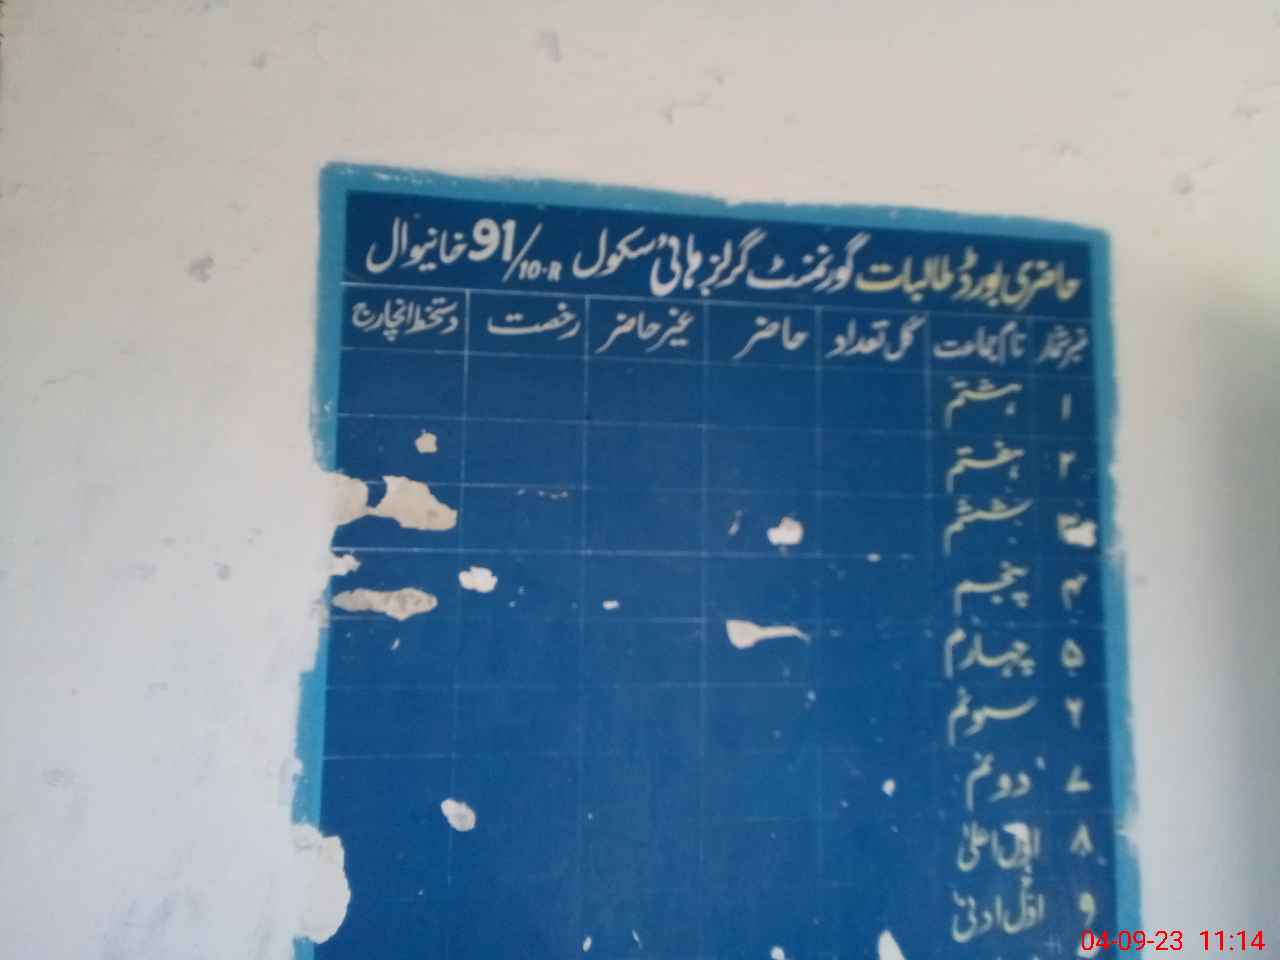 حاضری بورڈ طالبات گورنمنٹ گرلز ہائی سکول 91/10-R خانیوال
نمبر شمار نام جماعت کل تعداد حاضر غیر حاضر رخصت دستخط انچارج
۱ ہشتم
۲ ہفتم
۳ ششم
۴ پنجم
۵ چہارم
۶ سوئم
۷ دوئم
۸ اول اعلیٰ
۹ اوّل ادنیٰ
04-09-23 11:14